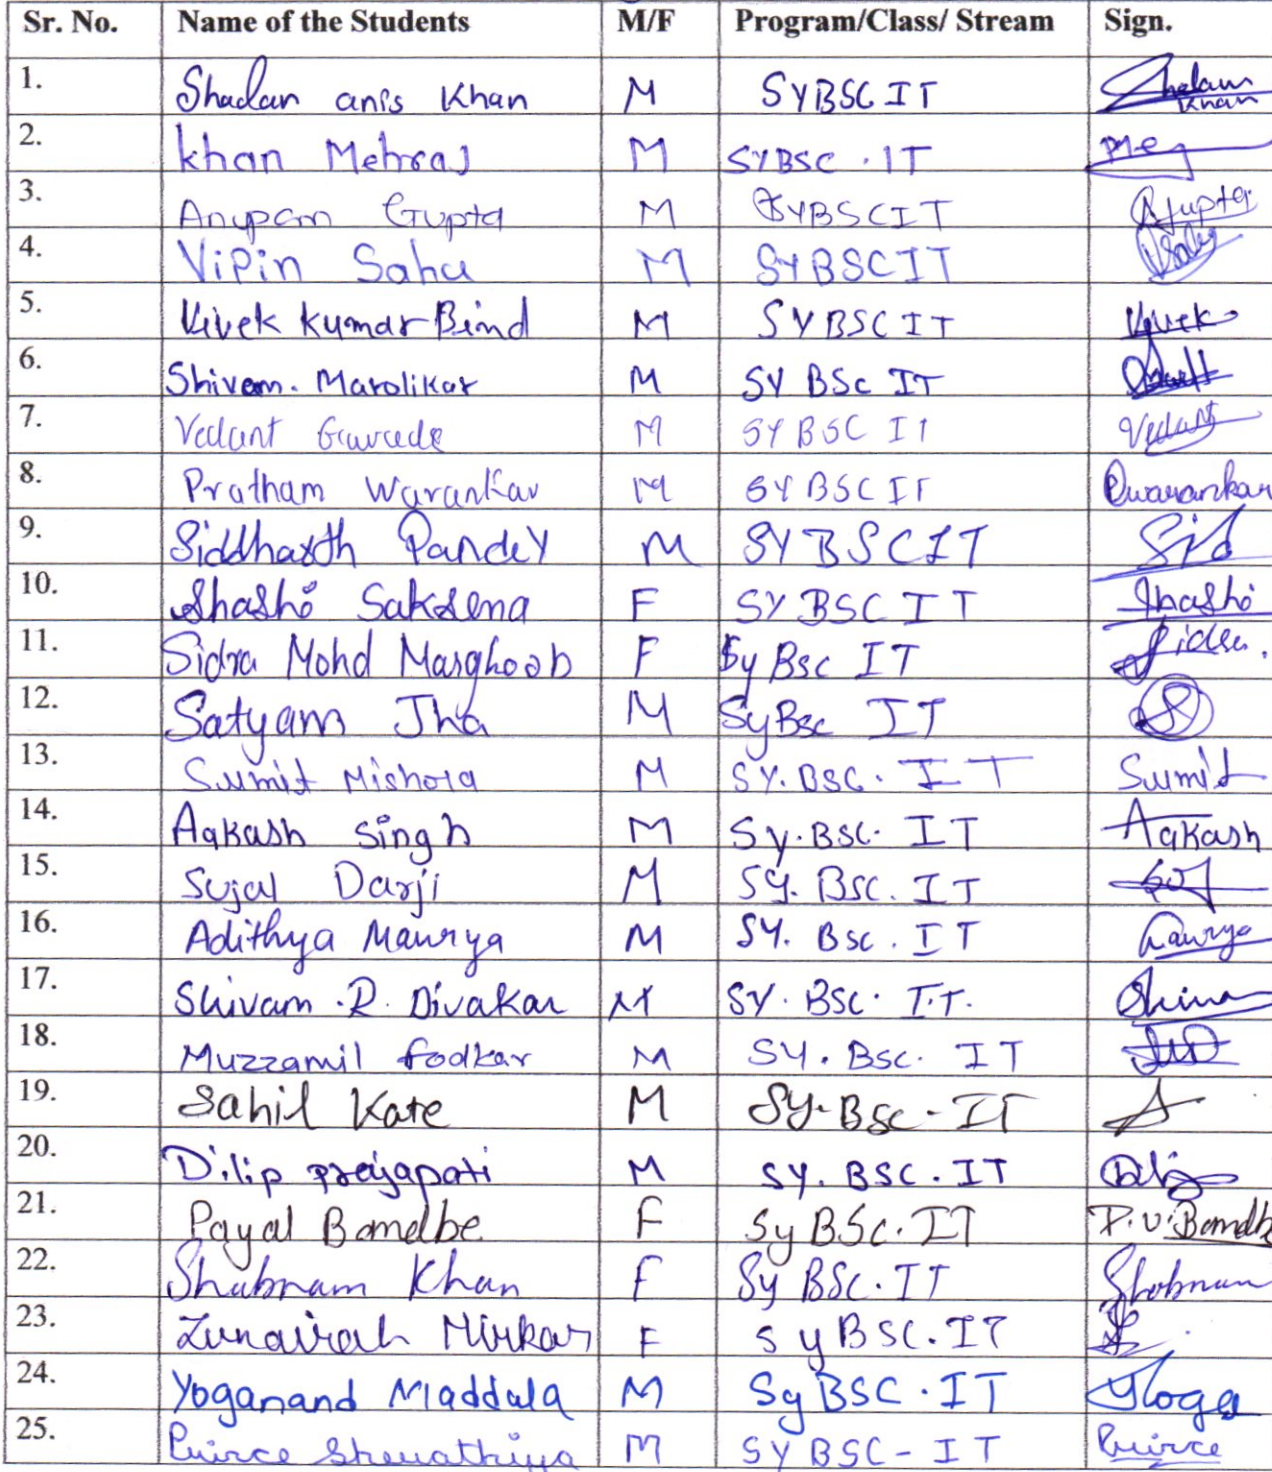 Sr. No. Name of the Students M/F Program/Class/ Stream Sign.
1. Shadan anis Khan M SYBSC IT Khan
2. Khan Mehraj M SYBSC . IT
3. Anupam Gupta M SYBSCIT Gupta
4. Vipin Sahu M SYBSCIT
5. Vivek Kumar Bind M SYBSC IT Vivek
6. Shivam. Marolikar M SY BSc IT
7. Vedant Gawade M SY BSC IT Vedant
8. Pratham Warankar M SY BSC IT Pwarankar
9. Siddharth Pandey M SY BSCIT Sid
10. Shashi Saksena F SY BSC IT Shashi
11. Sidra Mohd Marghoob F Sy Bsc IT Sidra.
12. Satyam Jha M SyBsc IT
13. Sumit Mishra M SY. BSC. IT Sumit
14. Aakash Singh M Sy. BSC. IT Aakash
15. Sujal Darji M SY. BSC. IT
16. Adithya Maurya M SY. Bsc. IT Maurya
17. Shivam .R. Divakar M SY. BSC. I.T.
18. Muzzamil fodkar M SY. Bsc. IT
19. Sahil Kate M SY. BSc - IT
20. Dilip prajapati M SY. BSC. IT
21. Payal Bamdbe F Sy BSc. IT
22. Shabnam Khan F Sy BSC. IT Shabnam
23. Zunairah Mirkar F Sy BSC. IT
24. Yoganand Maddala M Sy BSC. IT Yoga
25. M SY BSC - IT